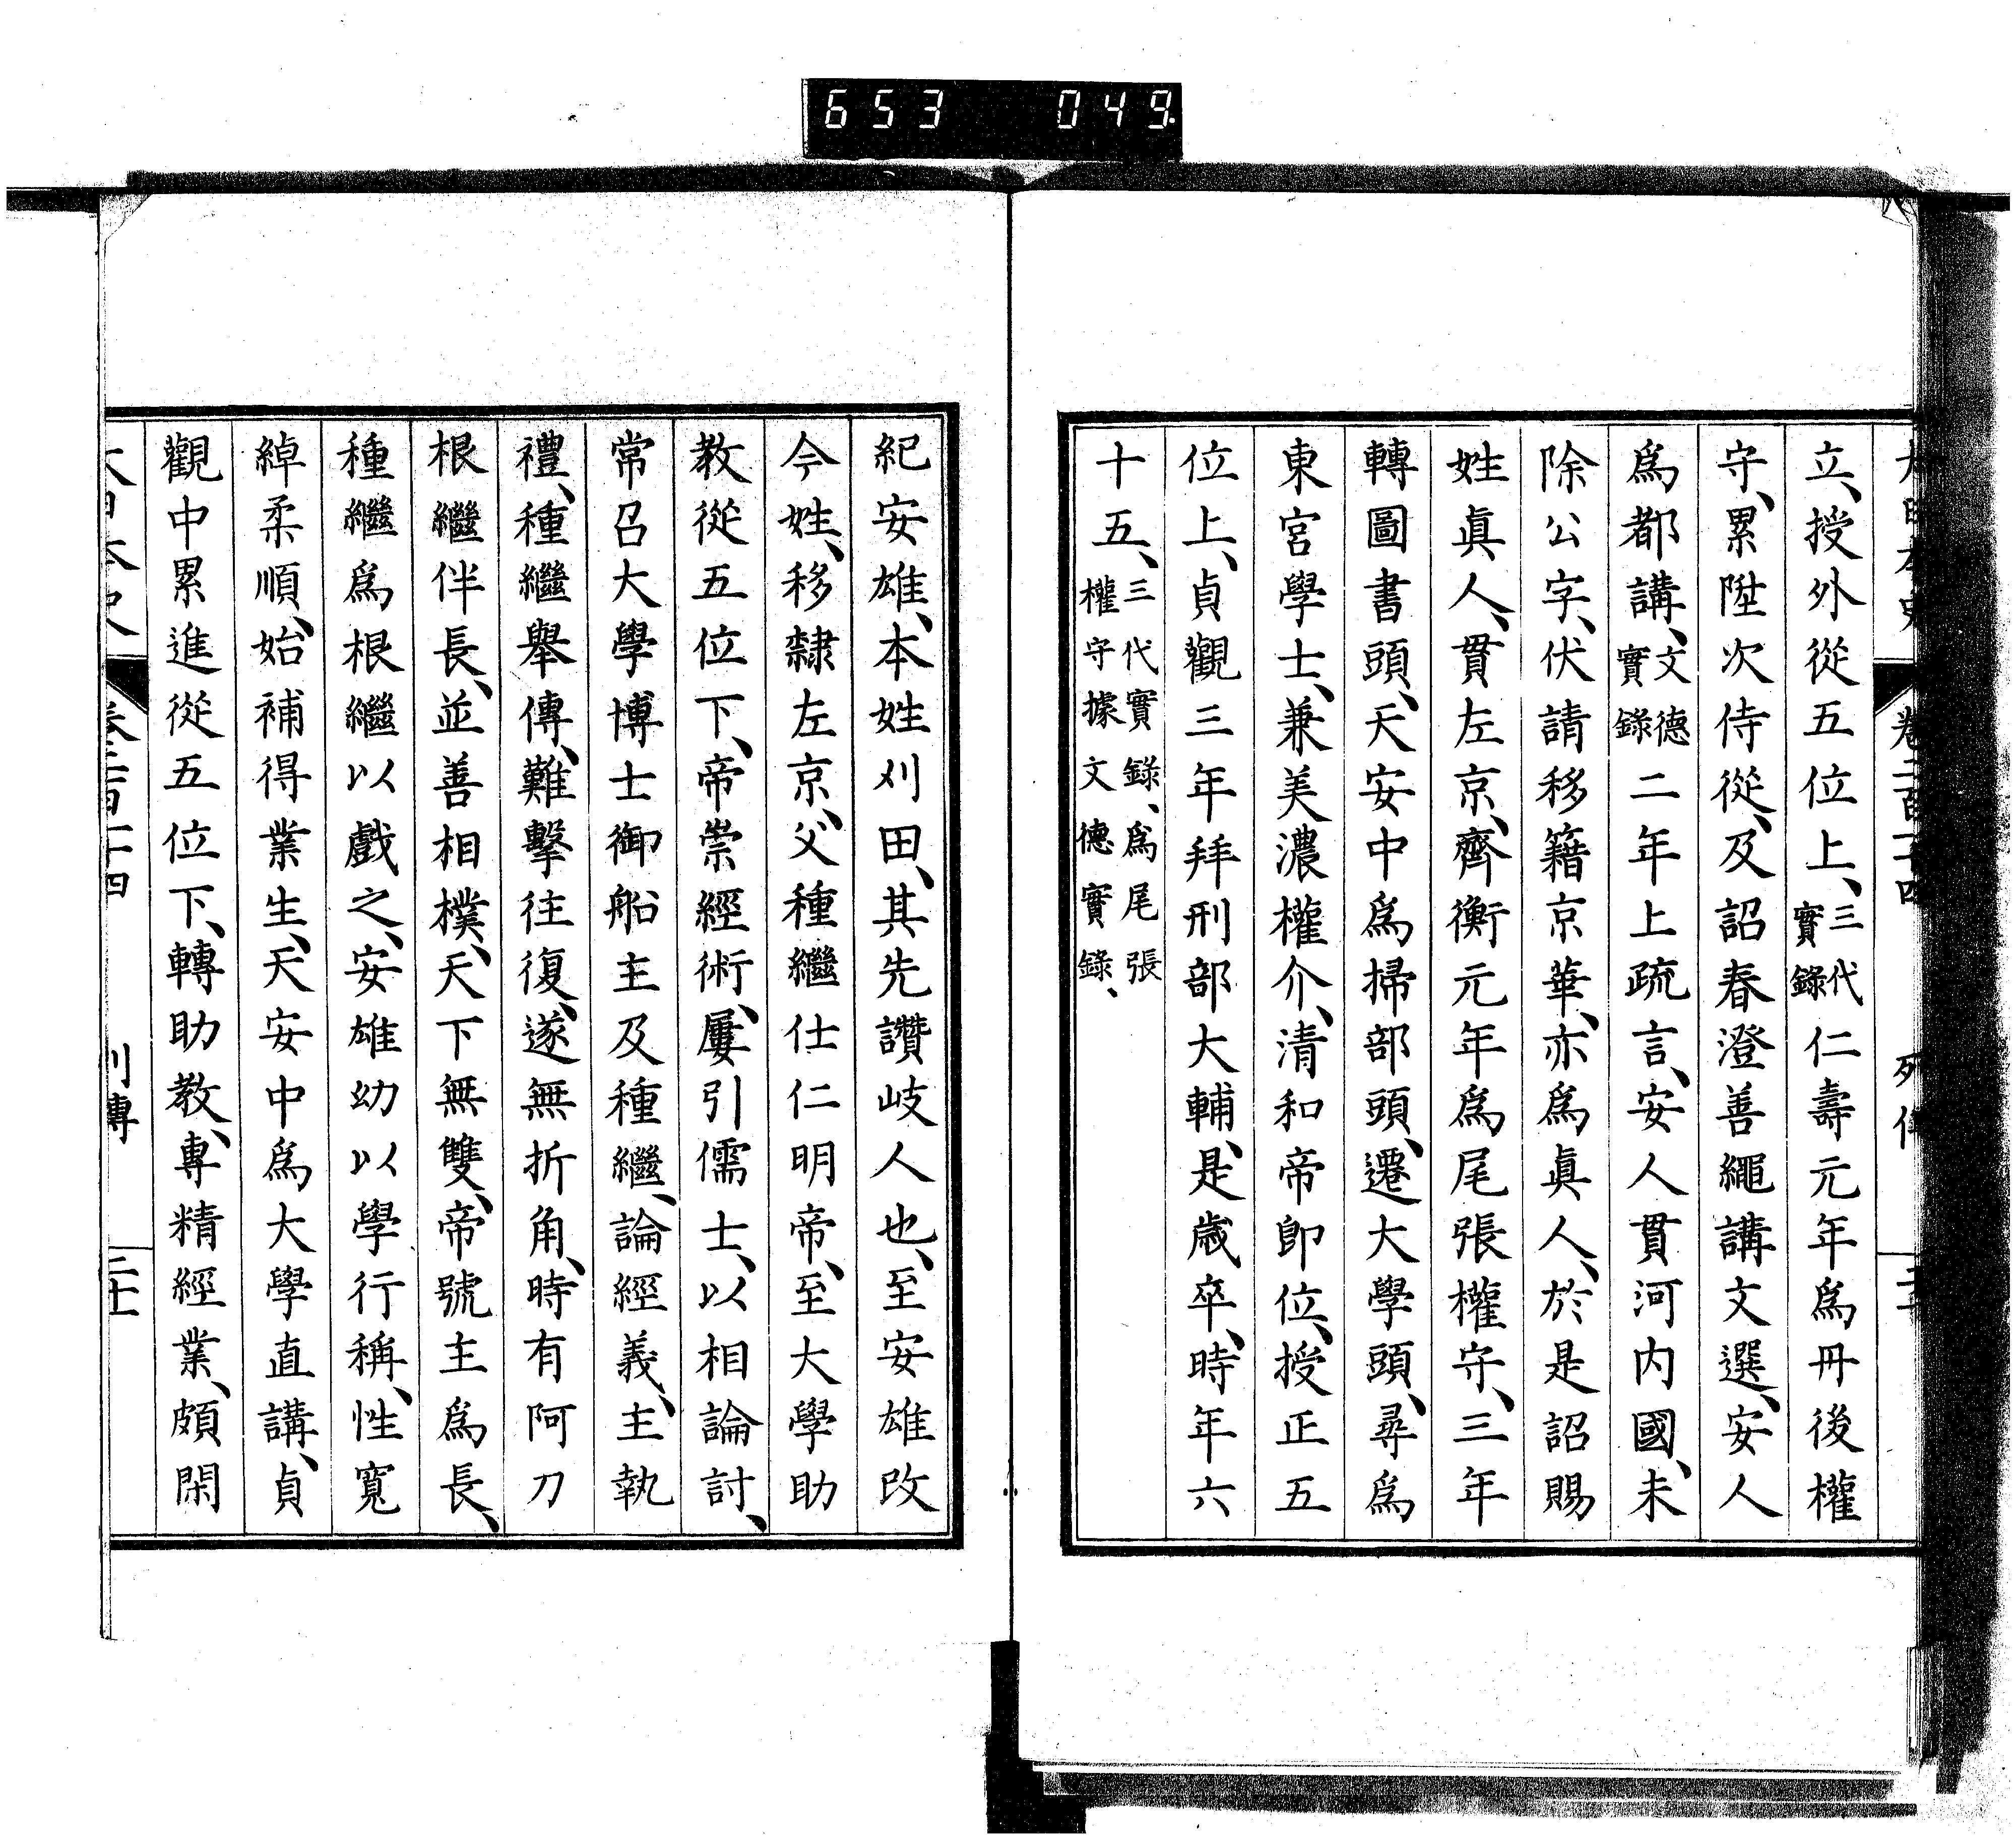 653 049
立、授外從五位上、三代實錄仁壽元年爲丹後權
守、累陞次侍從、及詔春澄善繩講文選、安人
爲都講、文德實錄二年上疏言、安人貫河内國、未
除公字、伏請移籍京華、亦爲眞人、於是詔賜
姓眞人、貫左京、齊衡元年爲尾張權守、三年
轉圖書頭、天安中爲掃部頭、遷大學頭、尋爲
東宮學士、兼美濃權介、清和帝即位、授正五
位上、貞觀三年拜刑部大輔、是歲卒、時年六
十五、三代實錄、爲尾張權守據文德實錄、
紀安雄、本姓刈田、其先讚岐人也、至安雄改
今姓、移隸左京、父種繼仕仁明帝、至大學助
教從五位下、帝崇經術、屢引儒士、以相論討、
常召大學博士御船主及種繼、論經義、主執
禮、種繼舉傳、難擊往復、遂無折角、時有阿刀
根繼伴長、並善相撲、天下無雙、帝號主爲長、
種繼爲根繼以戲之、安雄幼以學行稱、性寬
綽柔順、始補得業生、天安中爲大學直講、貞
觀中累進從五位下、轉助教、專精經業、頗閑
大日本史 卷二百十四 列傳